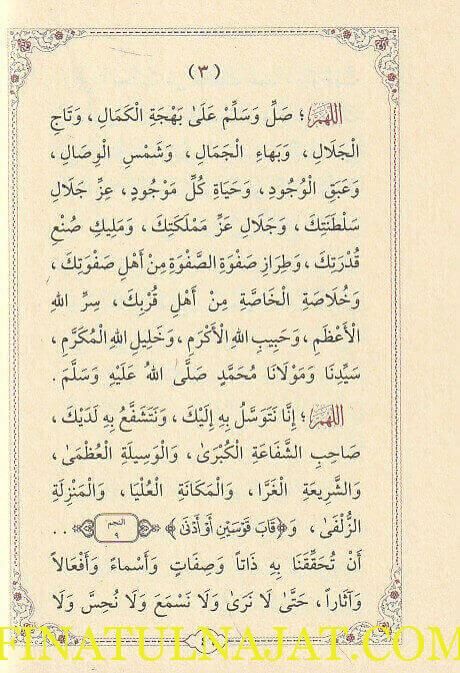 (٣)
اللَّهُمَّ ؛ صَلِّ وَسَلِّمْ عَلَىٰ بَهْجَةِ الْكَمَالِ ، وَتَاجِ
الْجَلَالِ ، وَبَهَاءِ الْجَمَالِ ، وَشَمْسِ الْوِصَالِ ،
وَعَبَقِ الْوُجُودِ ، وَحَيَاةِ كُلِّ مَوْجُودٍ ، عِزِّ جَلَالِ
سَلْطَنَتِكَ ، وَجَلَالِ عِزِّ مَمْلَكَتِكَ ، وَمَلِيكِ صُنْعِ
قُدْرَتِكَ ، وَطِرَازِ صَفْوَةِ الصَّفْوَةِ مِنْ أَهْلِ صَفْوَتِكَ ،
وَخُلَاصَةِ الْخَاصَّةِ مِنْ أَهْلِ قُرْبِكَ ، سِرِّ اللهِ
الْأَعْظَمِ ، وَحَبِيبِ اللهِ الْأَكْرَمِ ، وَخَلِيلِ اللهِ الْمُكَرَّمِ ،
سَيِّدِنَا وَمَوْلَانَا مُحَمَّدٍ صَلَّى اللهُ عَلَيْهِ وَسَلَّمَ .
اللَّهُمَّ ؛ إِنَّا نَتَوَسَّلُ بِهِ إِلَيْكَ ، وَنَتَشَفَّعُ بِهِ لَدَيْكَ ،
صَاحِبِ الشَّفَاعَةِ الْكُبْرَىٰ ، وَالْوَسِيلَةِ الْعُظْمَىٰ ،
وَالشَّرِيعَةِ الْغَرَّا ، وَالْمَكَانَةِ الْعُلْيَا ، وَالْمَنْزِلَةِ
الزُّلْفَىٰ ، وَ﴿قَابَ قَوْسَيْنِ أَوْ أَدْنَىٰ﴾ النجم ٩ ..
أَنْ تُحَقِّقَنَا بِهِ ذَاتاً وَصِفَاتٍ وَأَسْمَاءً وَأَفْعَالاً
وَآثَاراً ، حَتَّىٰ لَا نَرَىٰ وَلَا نَسْمَعَ وَلَا نُحِسَّ وَلَا
FINATULNAJAT.COM